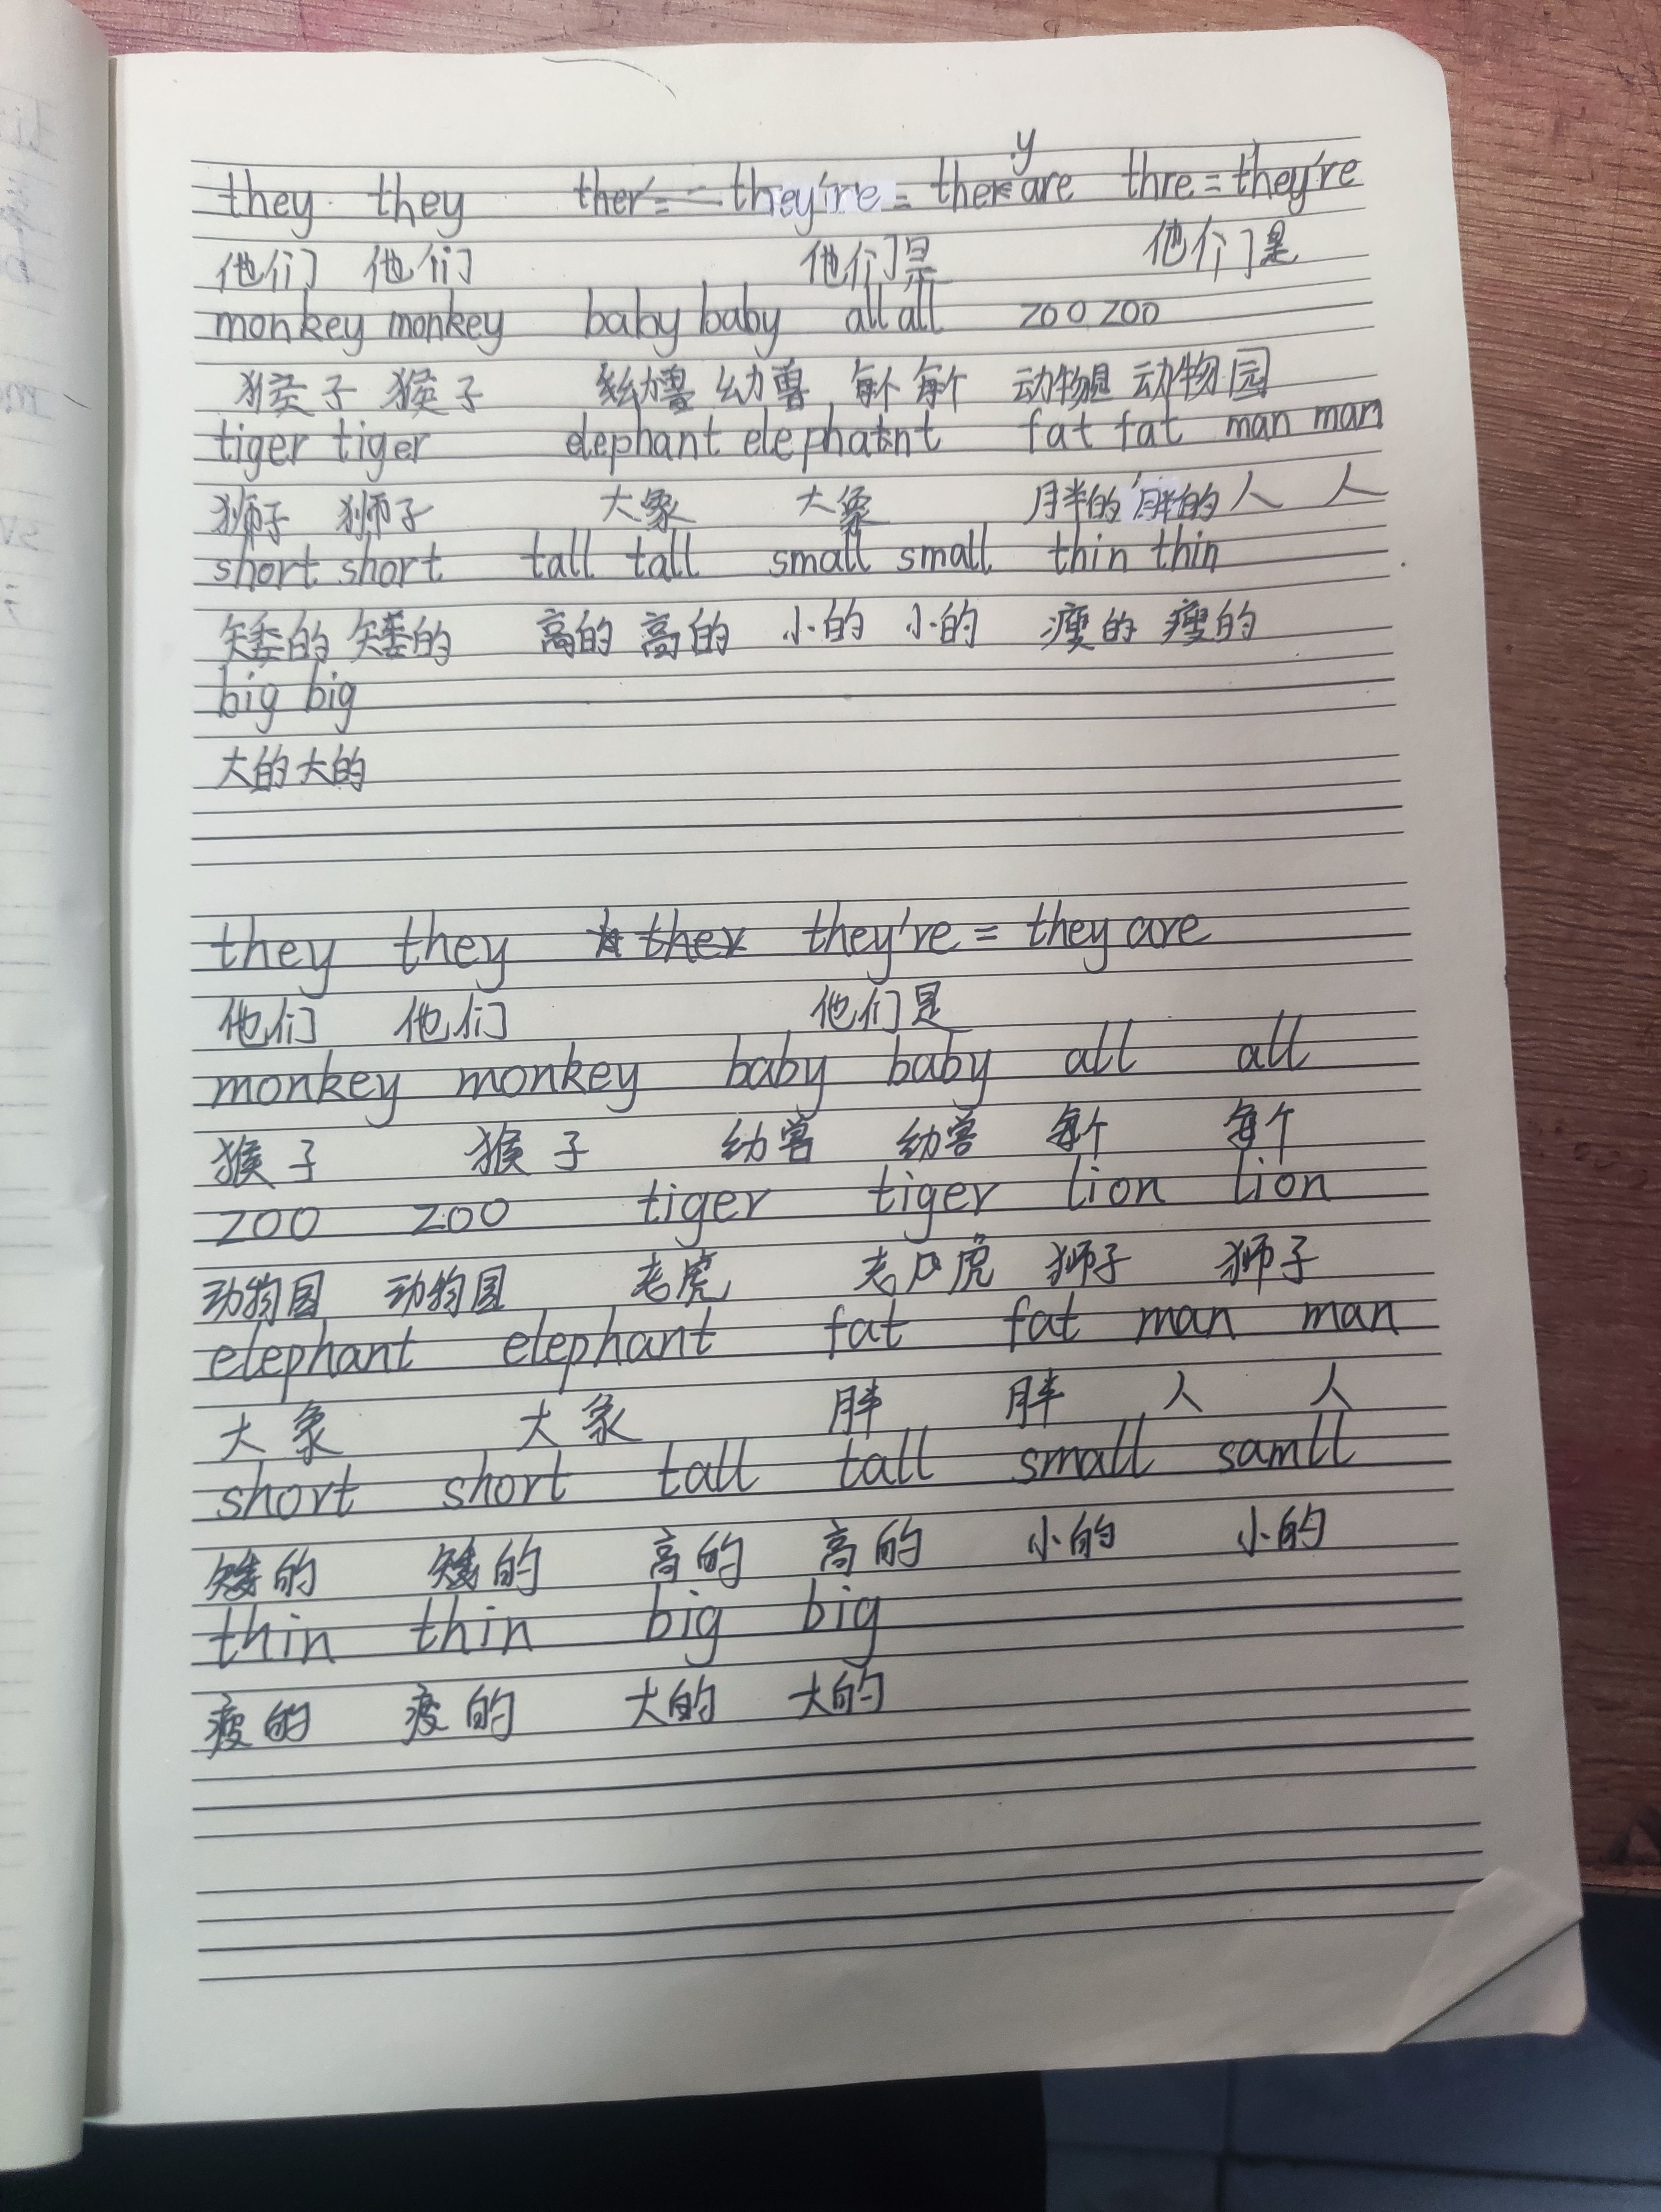 they they ther = they're = they are thre = they're
他们 他们 他们是 他们是
monkey monkey baby baby all all zoo zoo
猴子 猴子 幼兽 幼兽 每个 每个 动物园 动物园
tiger tiger elephant elephatnt fat fat man man
狮子 狮子 大象 大象 胖的 胖的 人 人
short short tall tall small small thin thin
矮的 矮的 高的 高的 小的 小的 瘦的 瘦的
big big
大的 大的
they they they're = they are
他们 他们 他们是
monkey monkey baby baby all all
猴子 猴子 幼兽 幼兽 每个 每个
zoo zoo tiger tiger lion lion
动物园 动物园 老虎 老虎 狮子 狮子
elephant elephant fat fat man man
大象 大象 胖 胖 人 人
short short tall tall small samll
矮的 矮的 高的 高的 小的 小的
thin thin big big
瘦的 瘦的 大的 大的